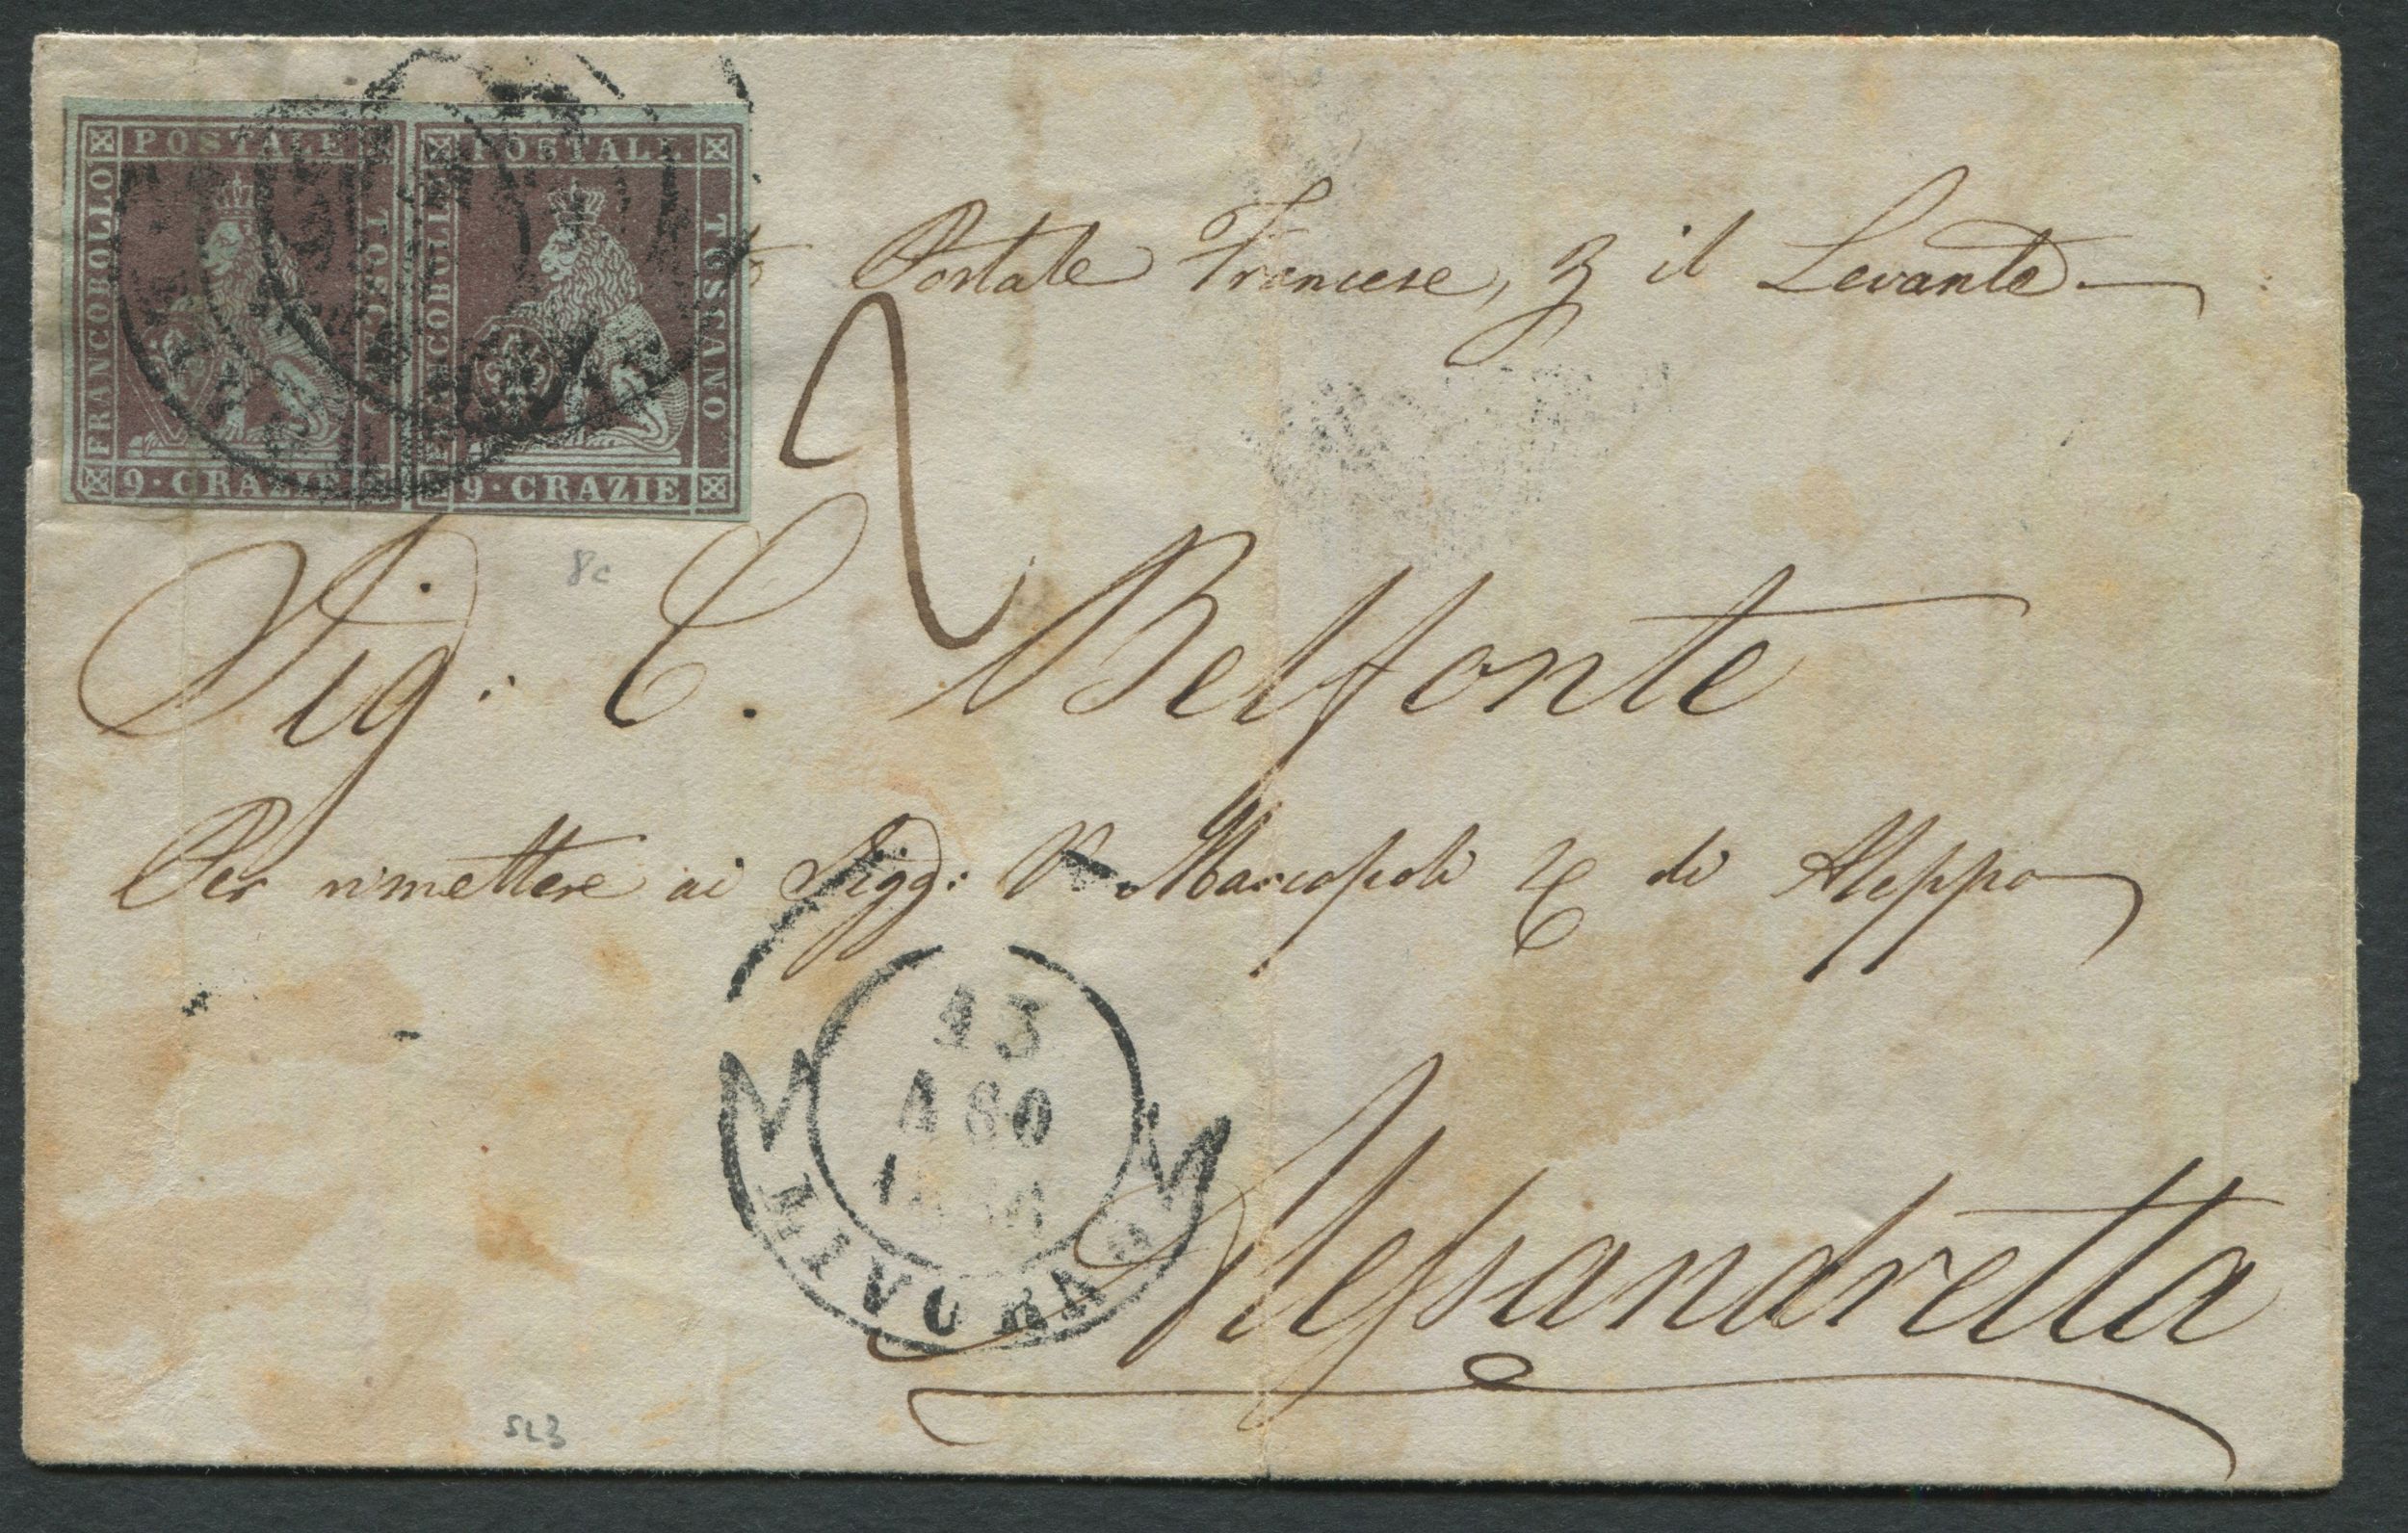 POSTALE
FRANCOBOLLO
TOSCANO
9 · CRAZIE
POSTALE
FRANCOBOLLO
TOSCANO
9 · CRAZIE
Postale Francese, p il Levante
2
8c
Sig: C. Belfonte
Per rimettere ai Sigg: V. Marcopoli & C di Aleppo
13
AGO
LIVORNO
Alessandretta